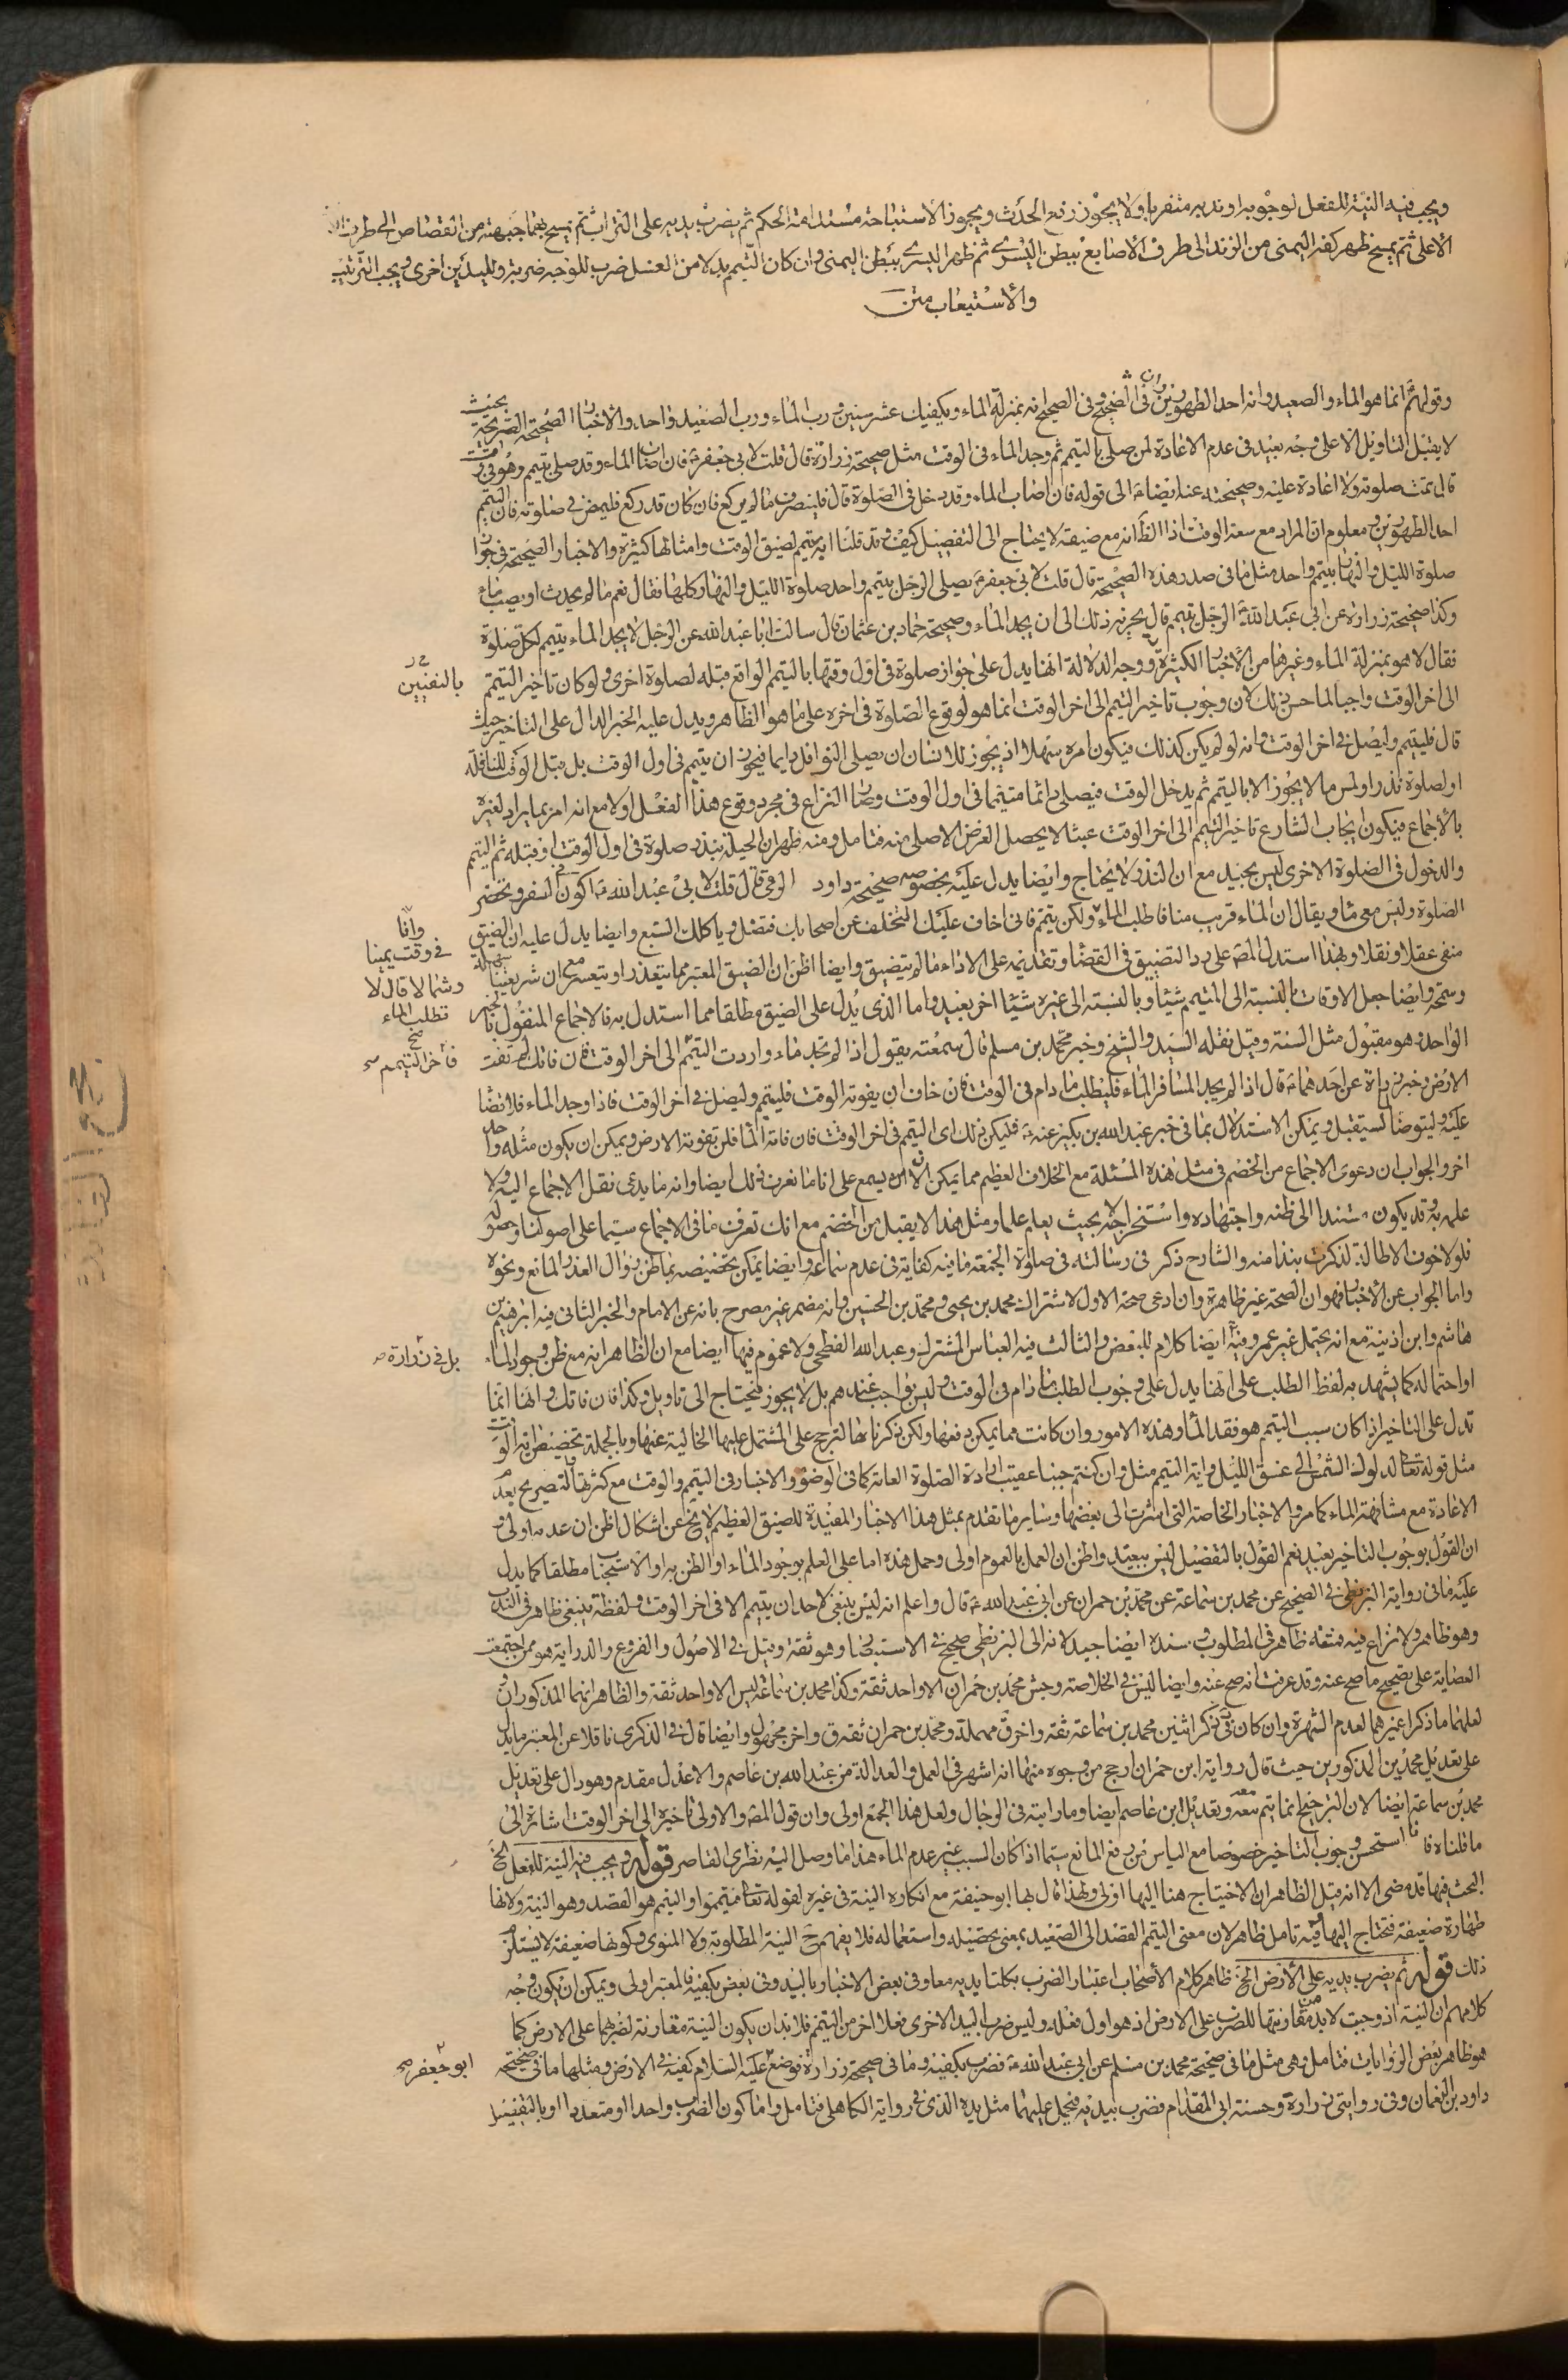 ويجب فيه النية للفعل لوجوبه او ندبه متقربا ولا يجوز رفع الحدث ويجوز الاستباحة مستدامة الحكم ثم يضرب بيديه على التراب ثم يمسح بهما جبهته من القصاص الى طرف الانف
الاعلى ثم يمسح ظهر كفه اليمنى من الزند الى طرف الاصابع ببطن اليسرى ثم ظهر اليسرى ببطن اليمنى وان كان التيمم بدلا من الغسل ضرب للوجه ضربة ولليدين اخرى ويجب الترتيب
والاستيعاب متن
وقولهم انما هو الماء والصعيد وانه احد الطهورين وان في الصحيح وفي الصحيح انه بمنزلة الماء ويكفيك عشر سنين ورب الماء ورب الصعيد واحد والاخبار الصحيحة الصريحة بحيث
لا يقبل التاويل الا على وجه بعيد في عدم الاعادة لمن صلى بالتيمم ثم وجد الماء في الوقت مثل صحيحة زرارة قال قلت لابي جعفر ع فان اصاب الماء وقد صلى بتيمم وهو في وقت
قال تمت صلوته ولا اعادة عليه وصحيحته عنه ايضا ع الى قوله فان اصاب الماء وقد دخل في الصلوة قال فلينصرف ما لم يركع فان كان قد ركع فليمض في صلوته فان التيمم
احد الطهورين ومعلوم ان المراد مع سعة الوقت اذ الظ انه مع ضيقه لا يحتاج الى التفصيل كيف وقد قلنا انه يتيمم لضيق الوقت وامثالها كثيرة والاخبار الصحيحة في جواز
صلوة الليل والنهار بتيمم واحد مثل ما في صدر هذه الصحيحة قال قلت لابي جعفر ع يصلي الرجل بتيمم واحد صلوة الليل والنهار كلها فقال نعم ما لم يحدث او يصب ماء
وكذا صحيحة زرارة عن ابي عبد الله ع الرجل تيمم قال يجزيه ذلك الى ان يجد الماء وصحيحة حماد بن عثمان قال سالت ابا عبد الله عن الرجل لا يجد الماء يتيمم لكل صلوة
فقال لا هو بمنزلة الماء وغيرها من الاخبار الكثيرة ووجه الدلالة انها يدل على جواز صلوة في اول وقتها بالتيمم الواقع قبله لصلوة اخرى ولو كان تاخير التيمم
الى اخر الوقت واجبا لما حسن ذلك لان وجوب تاخير التيمم الى اخر الوقت انما هو لوقوع الصلوة في اخره على ما هو الظاهر ويدل عليه الخبر الدال على التاخير حيث
قال فليتيمم وليصل في اخر الوقت وانه لو لم يكن كذلك فيكون امره سهلا اذ يجوز للانسان ان يصلي النوافل دايما فيجوز ان يتيمم في اول الوقت بل قبل الوقت للنافلة
او لصلوة نذر او لمس ما لا يجوز الا بالتيمم ثم يدخل الوقت فيصلي دائما متيمما في اول الوقت وصار النزاع في مجرد وقوع هذا الفعل اولا مع انه امر بما يراد لغيره
بالاجماع فيكون ايجاب الشارع تاخير التيمم الى اخر الوقت عبثا لا يحصل الغرض الاصلي منه فتامل ومنه ظهر ان الحيلة بنذر صلوة في اول الوقت او قبله ثم التيمم
والدخول في الصلوة الاخرى ليس بجيد مع ان النذر لا يحتاج وايضا يدل عليه بخصوصه صحيحة داود الرقي قال قلت لابي عبد الله ع اكون في السفر وتحضر
الصلوة وليس معي ماء ويقال ان الماء قريب منا فاطلب الماء ولكن تيمم فاني اخاف عليك التخلف عن اصحابك فتضل وياكلك السبع وايضا يدل عليه ان الضيق
منفي عقلا ونقلا وبهذا استدل المصـ على رد التضييق في القضاء وتقديمه على الاداء ما لم يتضيق وايضا اظن ان الضيق المعتبر مما يتعذر او يتعسر مع ان شريعتنا سهلة
وسمحة وايضا جعل الاوقات بالنسبة الى المتيمم شيئا وبالنسبة الى غيره شيئا اخر بعيد واما الذي يدل على الضيق مطلقا مما استدل به فالاجماع المنقول بالخبر
الواحد وهو مقبول مثل السنة وقيل نقله السيد والشيخ وخبر محمد بن مسلم قال سمعته يقول اذا لم تجد ماء واردت التيمم الى اخر الوقت فان فاتك لم تفت
الارض وخبر زرارة عن احدهما ع قال اذا لم يجد المسافر الماء فليطلب ما دام في الوقت فان خاف ان يفوته الوقت فليتيمم وليصل في اخر الوقت فاذا وجد الماء فلا قضاء
عليه وليتوضا لما يستقبل ويمكن الاستدلال بما في خبر عبد الله بن بكير عنه ع فليكن ذلك اي التيمم في اخر الوقت فان فاته الماء فلن تفوته الارض ويمكن ان يكون مثله واحد
اخر والجواب ان دعوى الاجماع من الخصم في مثل هذه المسئلة مع الخلاف العظيم مما يمكن الا انه يسمع على انا ما نعرف ذلك ايضا وانه ما يدعي نقل الاجماع اليه ولا
علمه به وقد يكون مستندا الى ظنه واجتهاده واستخراجه لا بحيث يعلم علما ومثل هذا لا يقبل من الخصم مع انك تعرف ما في الاجماع سيما على اصولنا وحصوله
فلولا خوف الاطالة لذكرت نبذا منه والشارح ذكر في رسالته في صلوة الجمعة ما فيه كفاية في عدم سماعه وايضا يمكن تخصيصه بما ظن زوال العذر المانع ونحوه
واما الجواب عن الاخبار فهو ان الصحة غير ظاهرة وان ادعى صحة الاول لاشتراك محمد بن يحيى ومحمد بن الحسين وانه مضمر غير مصرح بانه عن الامام والخبر الثاني فيه ابرهيم بن
هاشم وابن اذينة مع انه يحتمل غير عمر وفيه ايضا كلام للبعض والثالث فيه العباس المشترك وعبد الله الفطحي ولا عموم فيها ايضا مع ان الظاهر انه مع ظن وجود الماء
او احتماله كما يشهد به لفظ الطلب على انها يدل على وجوب الطلب ما دام في الوقت وليس بواجب عندهم بل لا يجوز فيحتاج الى تاويل وكذا فان فاتك وانها انما
تدل على التاخير اذا كان سبب التيمم هو فقد الماء وهذه الامور وان كانت مما يمكن دفعها ولكن ذكرناها لترجح على المشتمل عليها الخالية عنها وبالجملة تخصيص اية الوقت
مثل قوله تعالى لدلوك الشمس الى غسق الليل واية التيمم مثل وان كنتم جنبا عقيب ارادة الصلوة العامة كما في الوضوء والاخبار في التيمم والوقت مع كثرتها والتصريح بعدم
الاعادة مع مشافهة الماء كما مر والاخبار الخاصة التي اشرت الى بعضها وساير ما تقدم بمثل هذا الاخبار المفيدة للضيق العظيم لا يخ عن اشكال اظن ان عدمه اولى و
ان القول بوجوب التاخير بعيد نعم القول بالتفصيل ليس ببعيد واظن ان العمل بالعموم اولى وحمل هذه اما على العلم بوجود الماء او الظن به او الاستحباب مطلقا كما يدل
عليه ما في رواية البزنطي في الصحيح عن محمد بن سماعة عن محمد بن حمران عن ابي عبد الله ع قال واعلم انه ليس ينبغي لاحد ان يتيمم الا في اخر الوقت ولفظة ينبغي ظاهر في الندب
وهو ظاهر ولا نزاع فيه فتنقله ظاهر في المطلوب وسنده ايضا جيد لانه الى البزنطي صحيح في الاستبصار وهو ثقة وقيل في الاصول والفروع والدراية هو ممن اجتمعت
العصابة على تصحيح ما صح عنه وقد عرفت انه صح عنه وايضا ليس في الخلاصة وجش محمد بن حمران الا واحد ثقة وكذا محمد بن سماعة ليس الا واحد ثقة والظاهر انهما المذكوران
لعلهما ما ذكرا غيرهما لعدم الشهرة وان كان في ذكر اثنين محمد بن سماعة ثقة واخر مهملة ومحمد بن حمران ثقة ق واخر مجهول وايضا قال في الذكرى ناقلا عن المعتبر ما يدل
على تعديل محمد بن المذكورين حيث قال رواية ابن حمران ارجح من وجوه منها انه اشهر في العمل والعدالة من عبد الله بن عاصم والاعدل مقدم وهو دال على تعديل
محمد بن سماعة ايضا لان الترجيح انما يتم معه وتعديل ابن عاصم ايضا وما رايته في الرجال ولعل هذا الجمع اولى وان قول المصـ والاولى تاخيره الى اخر الوقت اشارة الى
ما قلناه فا استحسن وجوب التاخير خصوصا مع الياس من رفع المانع سيما اذا كان السبب غير عدم الماء هذا ما وصل اليه نظري القاصر قوله ويجب فيه النية للفعل الخ
البحث فيها قد مضى الا انه قيل الظاهر ان الاحتياج هنا اليها اولى ولهذا قال بها ابو حنيفة مع انكاره النية في غيره لقوله تعالى فتيمموا والتيمم هو القصد وهو النية ولانها
طهارة ضعيفة فتحتاج اليها وفيه تامل ظاهر لان معنى التيمم القصد الى الصعيد بمعنى تحصيله واستعماله فلا يفهم ح النية المطلوبة ولا المنوي وكونها ضعيفة لا يستلزم
ذلك قوله ثم يضرب بيديه على الارض الخ ظاهر كلام الاصحاب اعتبار الضرب بكلتا يديه معا وفي بعض الاخبار باليد وفي بعض بكفيه فالمعتبر اولى ويمكن ان يكون وجه
كلامهم ان النية اذ وجبت لا بد من مقارنتها للضرب على الارض اذ هو اول فعله وليس ضرب اليد الاخرى فعلا اخر من التيمم فلا بد ان يكون النية مقارنة لضربهما على الارض كما
هو ظاهر بعض الروايات فتامل وهي مثل ما في صحيحة محمد بن مسلم عن ابي عبد الله ع فضرب بكفيه وما في صحيحة زرارة فوضع عليه السلام كفيه في الارض ومثلها ما في صحيحة
داود بن النعمان وفي روايتي زرارة وحسنة ابي المقدام فضرب بيديه فيحمل عليهما مثل يده الذي في رواية الكاهلي فتامل واما كون الضرب واحدا او متعددا او بالتفصيل
بالنفيين
وانا
في وقت يمينا
وشمالا قال لا
تطلب الماء
صح
فاخر التيمم صح
بل في زرارة
ابو جعفر صح